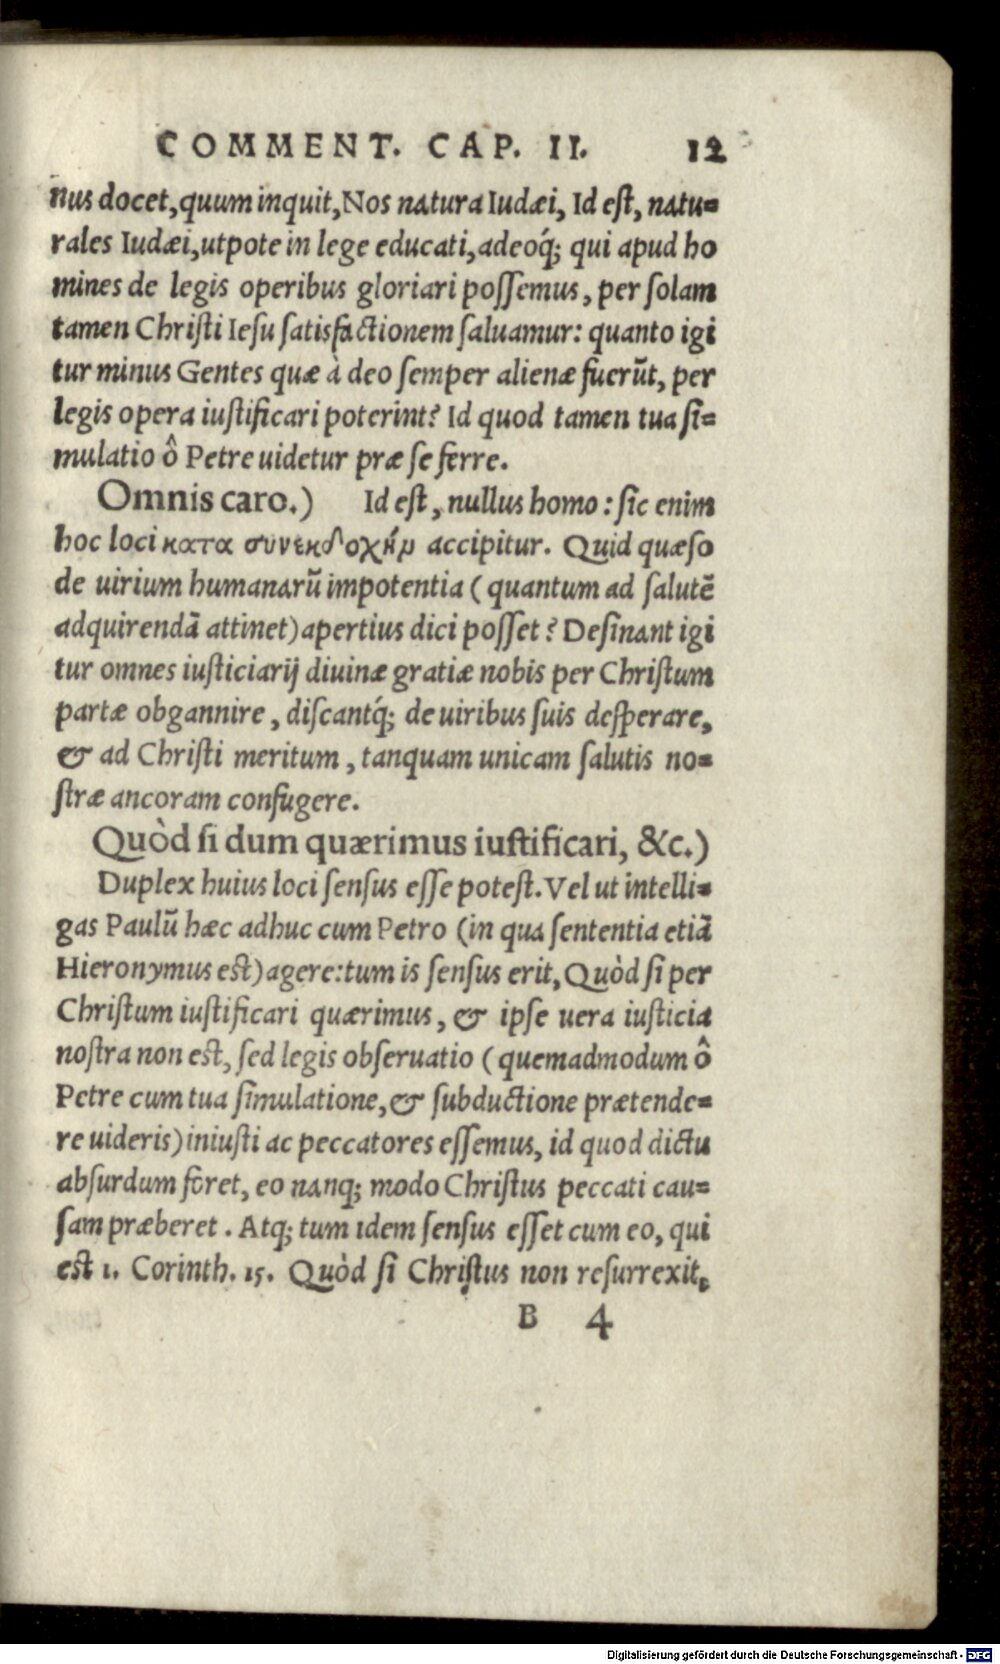 COMMENT. CAP. II. 12
nus docet, quum inquit, Nos natura Iudæi, Id eſt, natu=
rales Iudæi, utpote in lege educati, adeoq́; qui apud ho
mines de legis operibus gloriari poſſemus, per ſolam
tamen Chriſti Ieſu ſatisfactionem ſaluamur: quanto igi
tur minus Gentes quæ à deo ſemper alienæ fuerũt, per
legis opera iuſtificari poterint? Id quod tamen tua ſi=
mulatio ô Petre uidetur præ ſe ferre.
Omnis caro.) Id eſt, nullus homo: ſic enim
hoc loci κατα συνεκδοχὴν accipitur. Quid quæſo
de uirium humanarũ impotentia (quantum ad ſalutẽ
adquirendã attinet) apertius dici poſſet? Deſinant igi
tur omnes iuſticiarij diuinæ gratiæ nobis per Chriſtum
partæ obgannire, diſcantq́; de uiribus ſuis deſperare,
& ad Chriſti meritum, tanquam unicam ſalutis no=
ſtræ ancoram confugere.
Quòd ſi dum quærimus iuſtificari, &c.)
Duplex huius loci ſenſus eſſe poteſt. Vel ut intelli=
gas Paulũ hæc adhuc cum Petro (in qua ſententia etiã
Hieronymus est) agere: tum is ſenſus erit, Quòd ſi per
Chriſtum iuſtificari quærimus, & ipſe uera iuſticia
noſtra non est, ſed legis obſeruatio (quemadmodum ô
Petre cum tua ſimulatione, & ſubductione prætende=
re uideris) iniuſti ac peccatores eſſemus, id quod dictu
abſurdum foret, eo nanq; modo Chriſtus peccati cau=
ſam præberet. Atq; tum idem ſenſus eſſet cum eo, qui
est 1. Corinth. 15. Quòd ſi Chriſtus non reſurrexit,
B 4
Digitalisierung gefördert durch die Deutsche Forschungsgemeinschaft - DFG